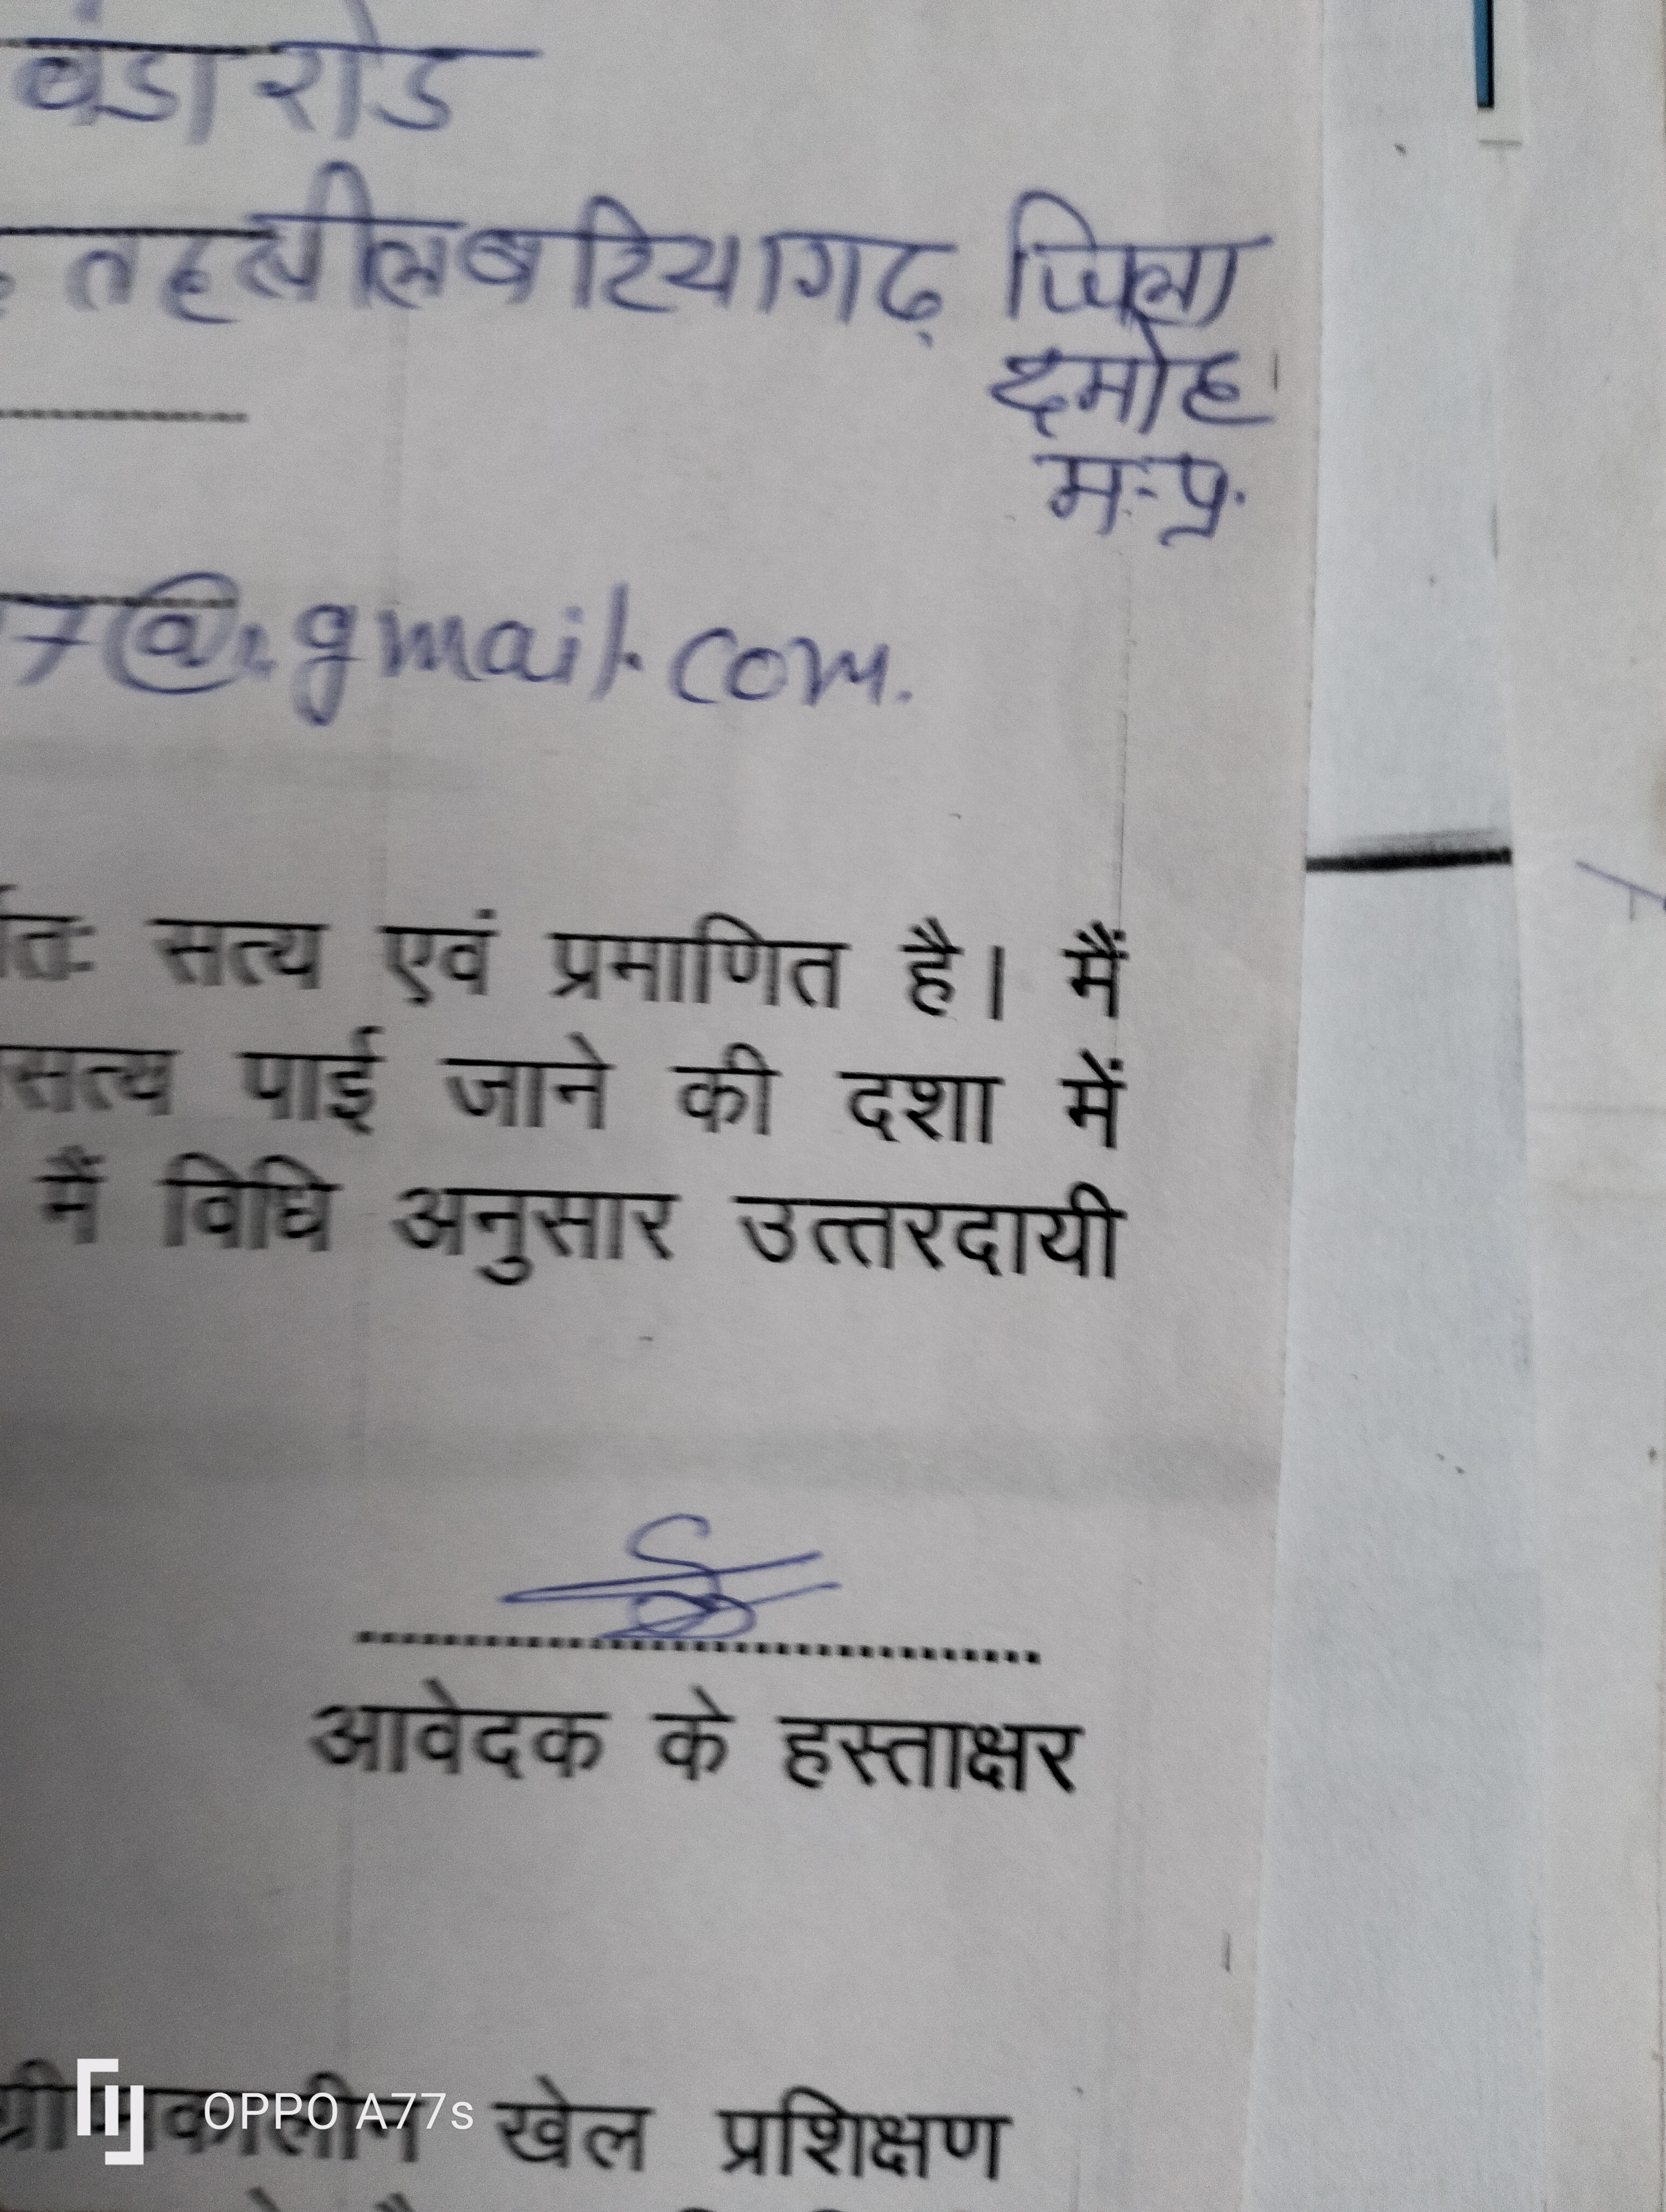 बंडा रोड
तहसील बटियागढ़ जिला
दमोह
म.प्र.
7@gmail.com.
सत्य एवं प्रमाणित है। मैं
पाई जाने की दशा में
मैं विधि अनुसार उत्तरदायी
आवेदक के हस्ताक्षर
ग्रीष्मकालीन खेल प्रशिक्षण
OPPO A77s